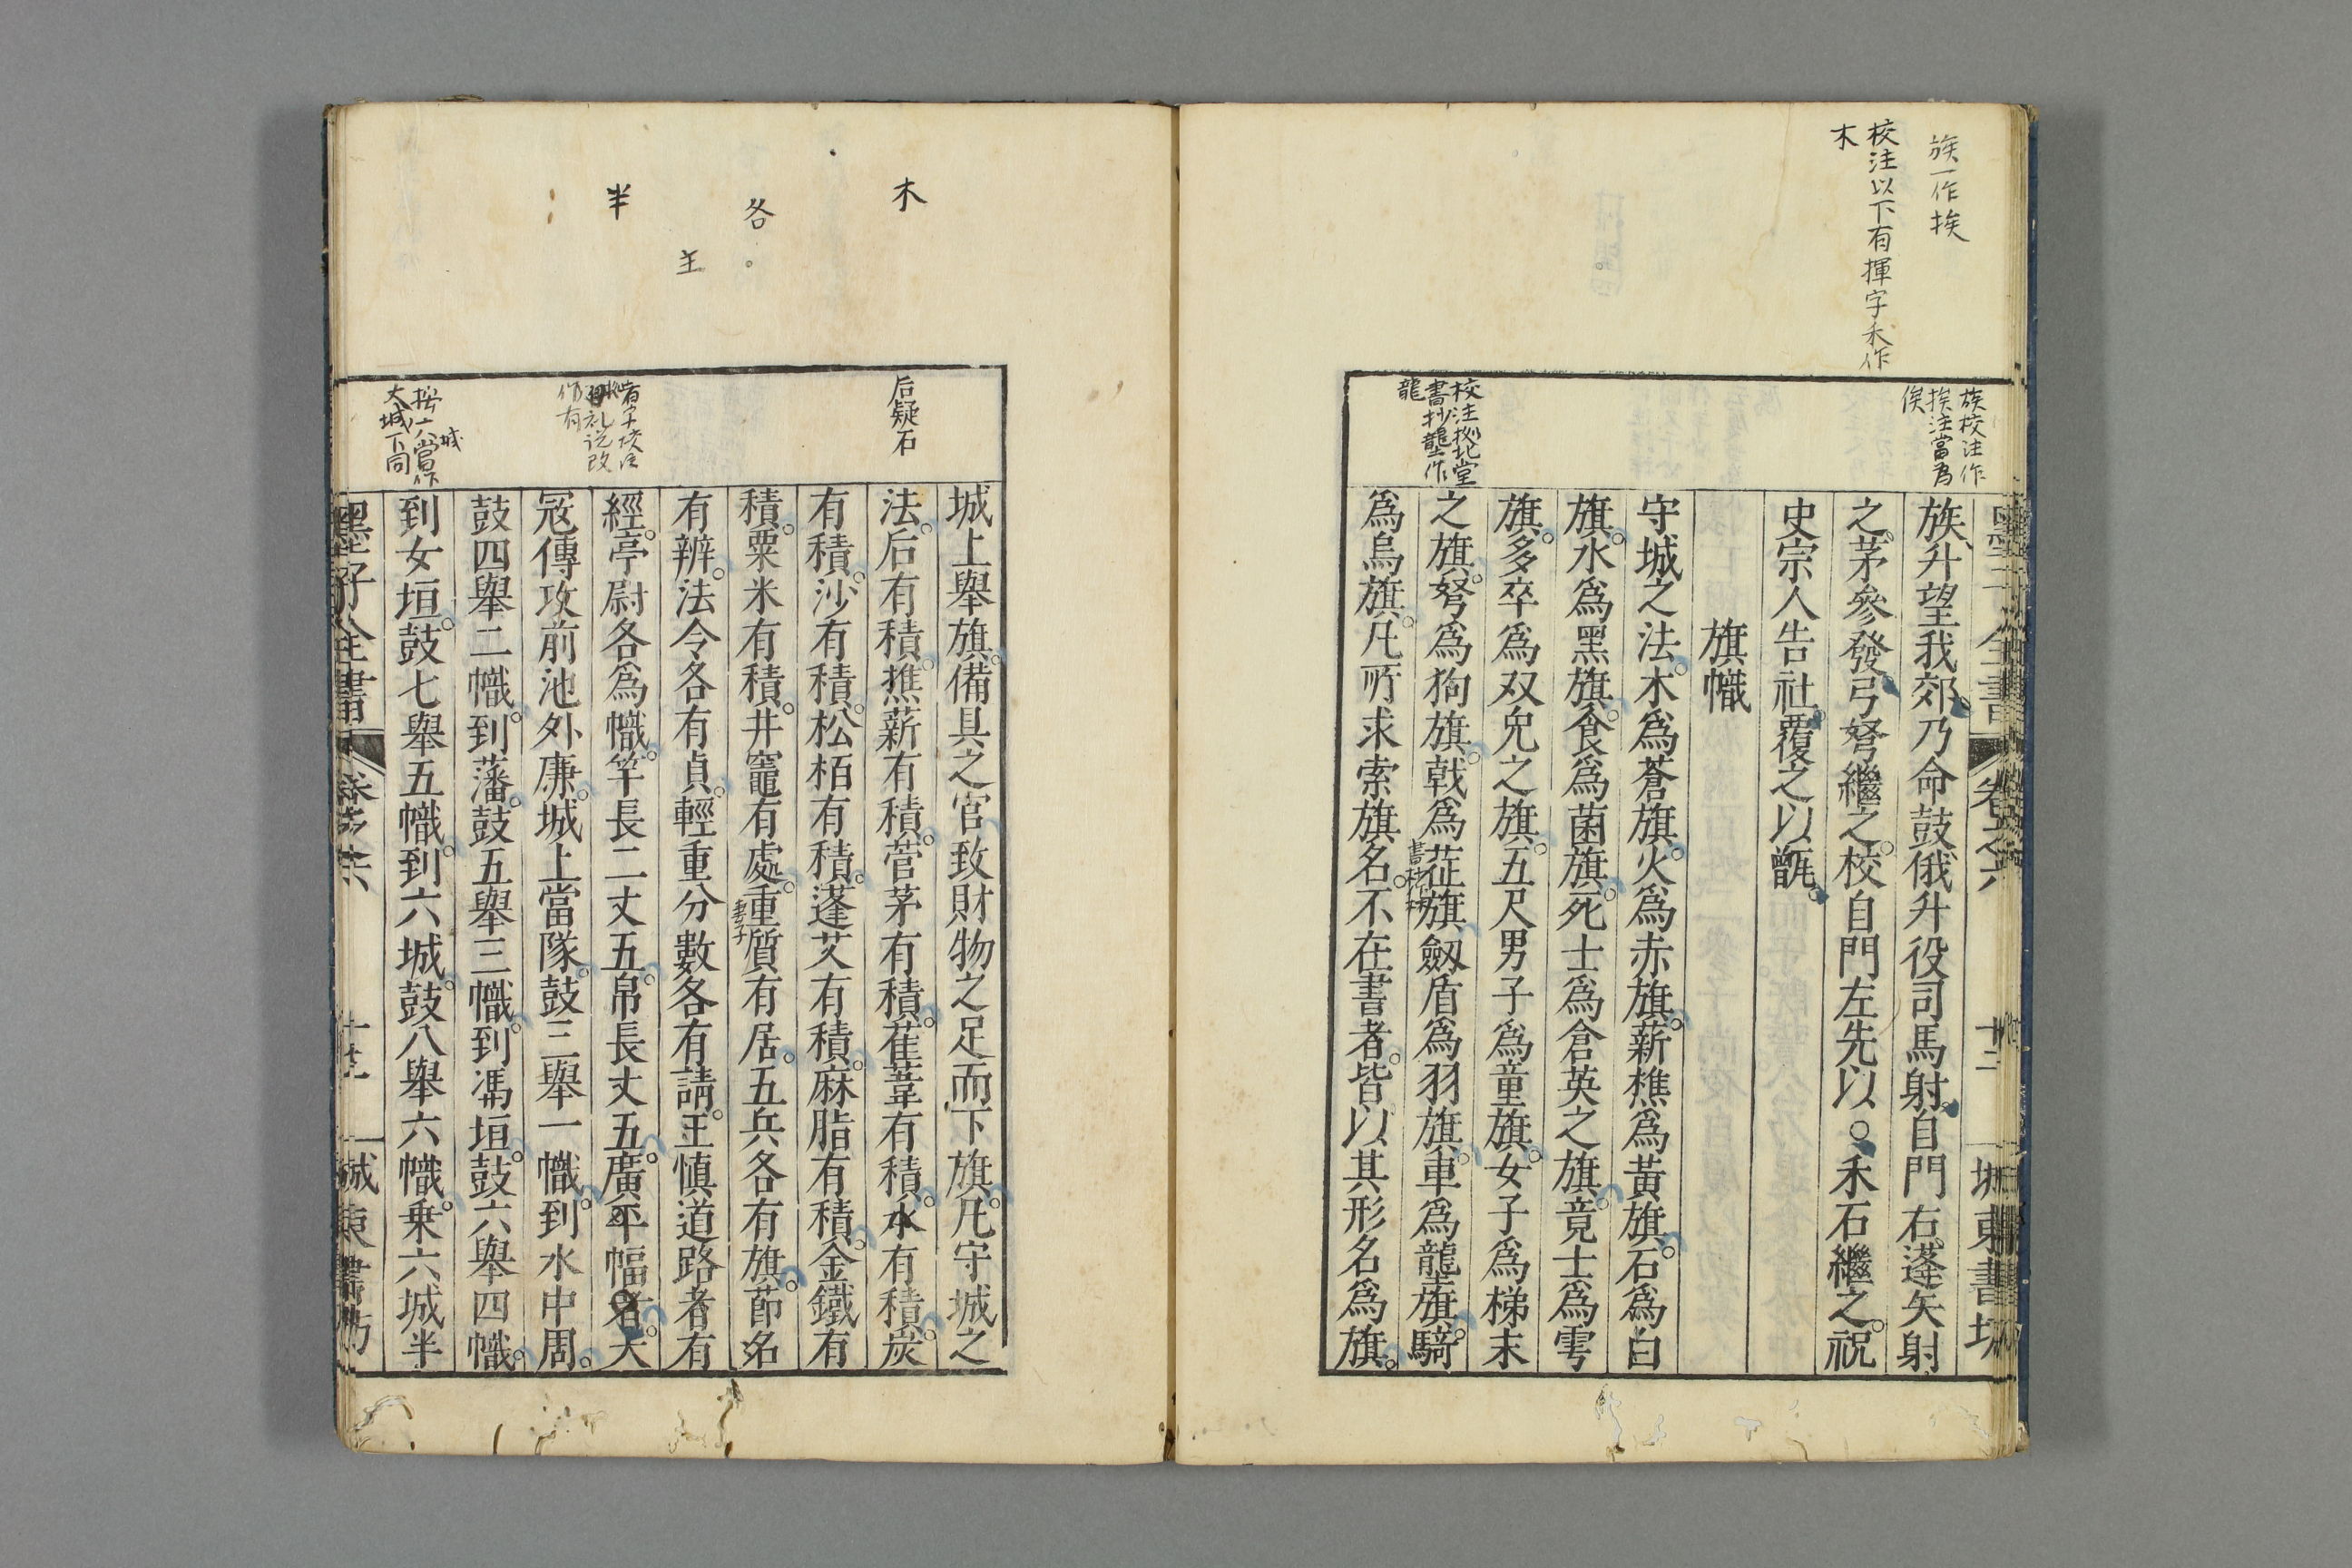 族一作挨
校注以下有揮字禾作
木
族校注作
挨注當為
俟
校注拠北堂
書抄龍作
龍
族升望我郊乃命鼓俄升役司馬射自門右蓬矢射
之茅參發弓弩繼之校自門左先以○禾石繼之祝
史宗人告社覆之以甑
旗幟
守城之法木爲蒼旗火爲赤旗薪樵爲黃旗石爲白
旗水爲黑旗食爲菌旗死士爲倉英之旗竟士爲雩
旗多卒爲双兔之旗五尺男子爲童旗女子爲梯末
之旗弩爲狗旗戟爲莊旗劔盾爲羽旗車爲龍旗騎
爲鳥旗凡所求索旗名不在書者皆以其形名爲旗
木
各
主
半
后疑石
按六當作
大城下同
城
城上舉旗備具之官致財物之足而下旗凡守城之
法后有積樵薪有積菅茅有積雚葦有積木有積炭
有積沙有積松栢有積蓬艾有積麻脂有積金鐵有
積粟米有積井竈有處重質有居五兵各有旗節名
有辨法令各有貞輕重分數各有請王慎道路者有
經亭尉各爲幟竿長二丈五帛長丈五廣平幅者大
冦傳攻前池外廉城上當隊鼓三舉一幟到水中周
鼓四舉二幟到藩鼓五舉三幟到馮垣鼓六舉四幟
到女垣鼓七舉五幟到六城鼓八舉六幟乗六城半